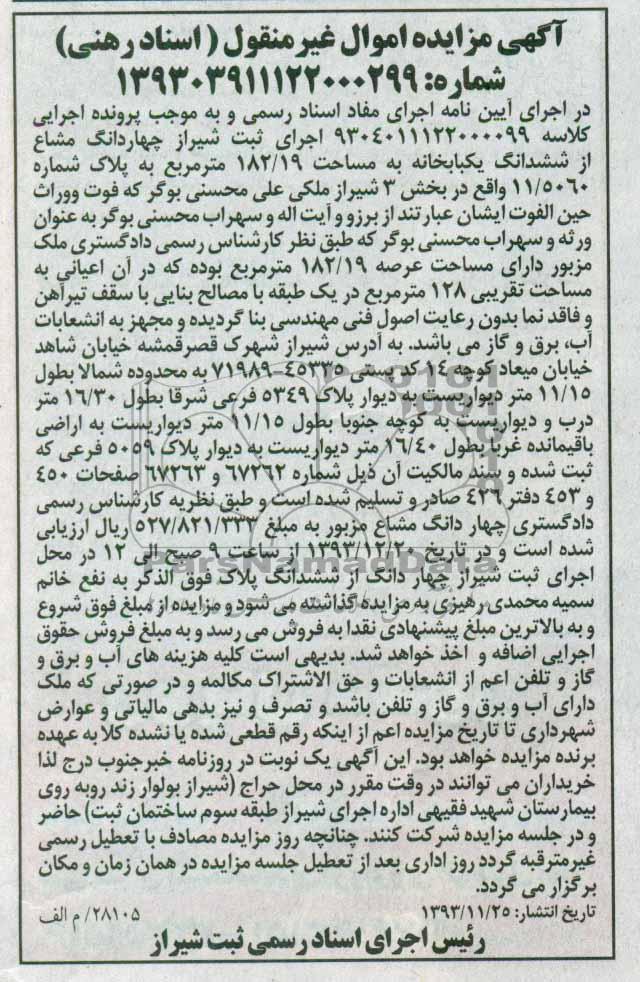 آگهی مزایده اموال غیر منقول (اسناد رهنی)
شماره: ۱۳۹۳۰۳۹۱۱۱۲۲۰۰۰۲۹۹
در اجرای آیین نامه اجرای مفاد اسناد رسمی و به موجب پرونده اجرایی
کلاسه ۹۳۰۴۰۱۱۱۲۲۰۰۰۰۹۹ اجرای ثبت شیراز چهاردانگ مشاع
از ششدانگ یکبابخانه به مساحت ۱۸۲/۱۹ مترمربع به پلاک شماره
۱۱/۵۰۶۰ واقع در بخش ۳ شیراز ملکی علی محسنی بوگر که فوت ووراث
حین الفوت ایشان عبارتند از برزو و آیت اله و سهراب محسنی بوگر به عنوان
ورثه و سهراب محسنی بوگر که طبق نظر کارشناس رسمی دادگستری ملک
مزبور دارای مساحت عرصه ۱۸۲/۱۹ مترمربع بوده که در آن اعیانی به
مساحت تقریبی ۱۲۸ مترمربع در یک طبقه با مصالح بنایی با سقف تیرآهن
و فاقد نما بدون رعایت اصول فنی مهندسی بنا گردیده و مجهز به انشعابات
آب، برق و گاز می باشد. به آدرس شیراز شهرک قصرقمشه خیابان شاهد
خیابان میعاد کوچه ۱۴ کد پستی ۴۵۳۲۵-۷۱۹۸۹ به محدوده شمالا بطول
۱۱/۱۵ متر دیواریست به دیوار پلاک ۵۳۴۹ فرعی شرقا بطول ۱۶/۳۰ متر
درب و دیواریست به کوچه جنوبا بطول ۱۱/۱۵ متر دیواریست به اراضی
باقیمانده غربا بطول ۱۶/۴۰ متر دیواریست به دیوار پلاک ۵۰۵۹ فرعی که
ثبت شده و سند مالکیت آن ذیل شماره ۶۷۲۶۲ و ۶۷۲۶۳ صفحات ۴۵۰
و ۴۵۳ دفتر ۴۲۶ صادر و تسلیم شده است و طبق نظریه کارشناس رسمی
دادگستری چهار دانگ مشاع مزبور به مبلغ ۵۲۷/۸۲۱/۳۳۳ ریال ارزیابی
شده است و در تاریخ ۱۳۹۳/۱۲/۲۰ از ساعت ۹ صبح الی ۱۲ در محل
اجرای ثبت شیراز چهار دانگ از ششدانگ پلاک فوق الذکر به نفع خانم
سمیه محمدی رهیزی به مزایده گذاشته می شود و مزایده از مبلغ فوق شروع
و به بالاترین مبلغ پیشنهادی نقدا به فروش می رسد و به مبلغ فروش حقوق
اجرایی اضافه و اخذ خواهد شد. بدیهی است کلیه هزینه های آب و برق و
گاز و تلفن اعم از انشعابات و حق الاشتراک مکالمه و در صورتی که ملک
دارای آب و برق و گاز و تلفن باشد و تصرف و نیز بدهی مالیاتی و عوارض
شهرداری تا تاریخ مزایده اعم از اینکه رقم قطعی شده یا نشده کلا به عهده
برنده مزایده خواهد بود. این آگهی یک نوبت در روزنامه خبرجنوب درج لذا
خریداران می توانند در وقت مقرر در محل حراج (شیراز بولوار زند روبه روی
بیمارستان شهید فقیهی اداره اجرای شیراز طبقه سوم ساختمان ثبت) حاضر
و در جلسه مزایده شرکت کنند. چنانچه روز مزایده مصادف با تعطیل رسمی
غیرمترقبه گردد روز اداری بعد از تعطیل جلسه مزایده در همان زمان و مکان
برگزار می گردد.
تاریخ انتشار: ۱۳۹۳/۱۱/۲۵
۲۸۱۰۵/ م الف
رئیس اجرای اسناد رسمی ثبت شیراز
ParsNamadData